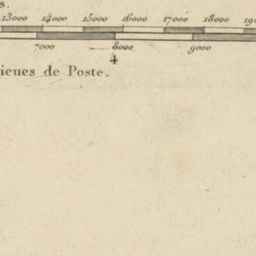 s.
13000 14000 15000 16000 17000 18000 19
7000 8000 9000
4
ieues de Poste.